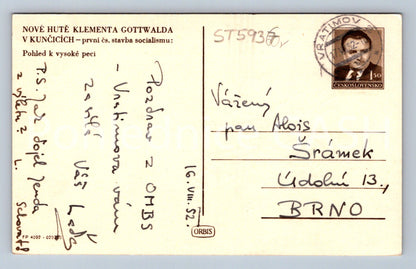 NOVÉ HUTĚ KLEMENTA GOTTWALDA
V KUNČICÍCH – první čs. stavba socialismu:
Pohled k vysoké peci
ST593
VRATIMOV
1,50
ČESKOSLOVENSKO
Pozdrav z OMBS
- Vratimova vám
zasílá Váš
16.VIII.52.
P.S. Jak dojel Jenda
z výletu z
L.
Vážený
pan Alois
Šrámek
Údolní 13.,
BRNO
ORBIS